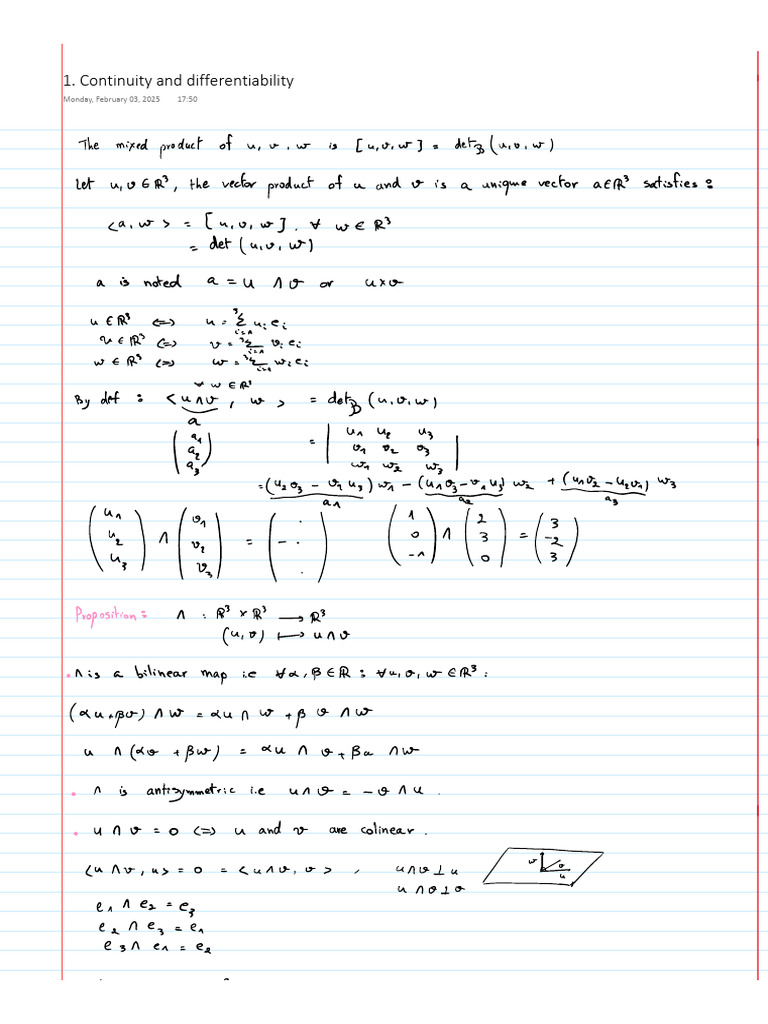 1. Continuity and differentiability
Monday, February 03, 2025 17:50
The mixed product of u, v, w is [u,v,w] = det_B (u,v,w)
Let u,v ∈ ℝ³, the vector product of u and v is a unique vector a∈ℝ³ satisfies :
<a,w> = [u,v,w], ∀ w ∈ ℝ³
= det (u,v,w)
a is noted a = u ∧ v or u×v
u ∈ ℝ³ <=> u = ³Σ_{i=1} u_i e_i
v ∈ ℝ³ <=> v = ³Σ_{i=1} v_i e_i
w ∈ ℝ³ <=> w = ³Σ_{i=1} w_i e_i
∀ w ∈ ℝ³
By def : <u∧v, w> = det_B (u,v,w)
a
(a₁ a₂ a₃) = | u₁ u₂ u₃
v₁ v₂ v₃
w₁ w₂ w₃ |
= (u₂v₃ - v₂u₃) w₁ - (u₁v₃ - v₁u₃) w₂ + (u₁v₂ - u₂v₁) w₃
a₁ a₂ a₃
(u₁ u₂ u₃) ∧ (v₁ v₂ v₃) = ( . - . . ) (1 0 -1) ∧ (2 3 0) = (3 -2 3)
Proposition : ∧ : ℝ³ × ℝ³ → ℝ³
(u,v) ↦ u∧v
• ∧ is a bilinear map i.e ∀α,β∈ℝ : ∀u,v,w∈ℝ³ :
(αu+βv) ∧ w = αu ∧ w + β v ∧ w
u ∧ (αv + βw) = αu ∧ v + βu ∧ w
• ∧ is antisymmetric i.e u∧v = -v∧u .
• u ∧ v = 0 <=> u and v are colinear .
<u∧v, u> = 0 = <u∧v, v> , u∧v ⊥ u
u∧v ⊥ v
w v u
e₁ ∧ e₂ = e₃
e₂ ∧ e₃ = e₁
e₃ ∧ e₁ = e₂